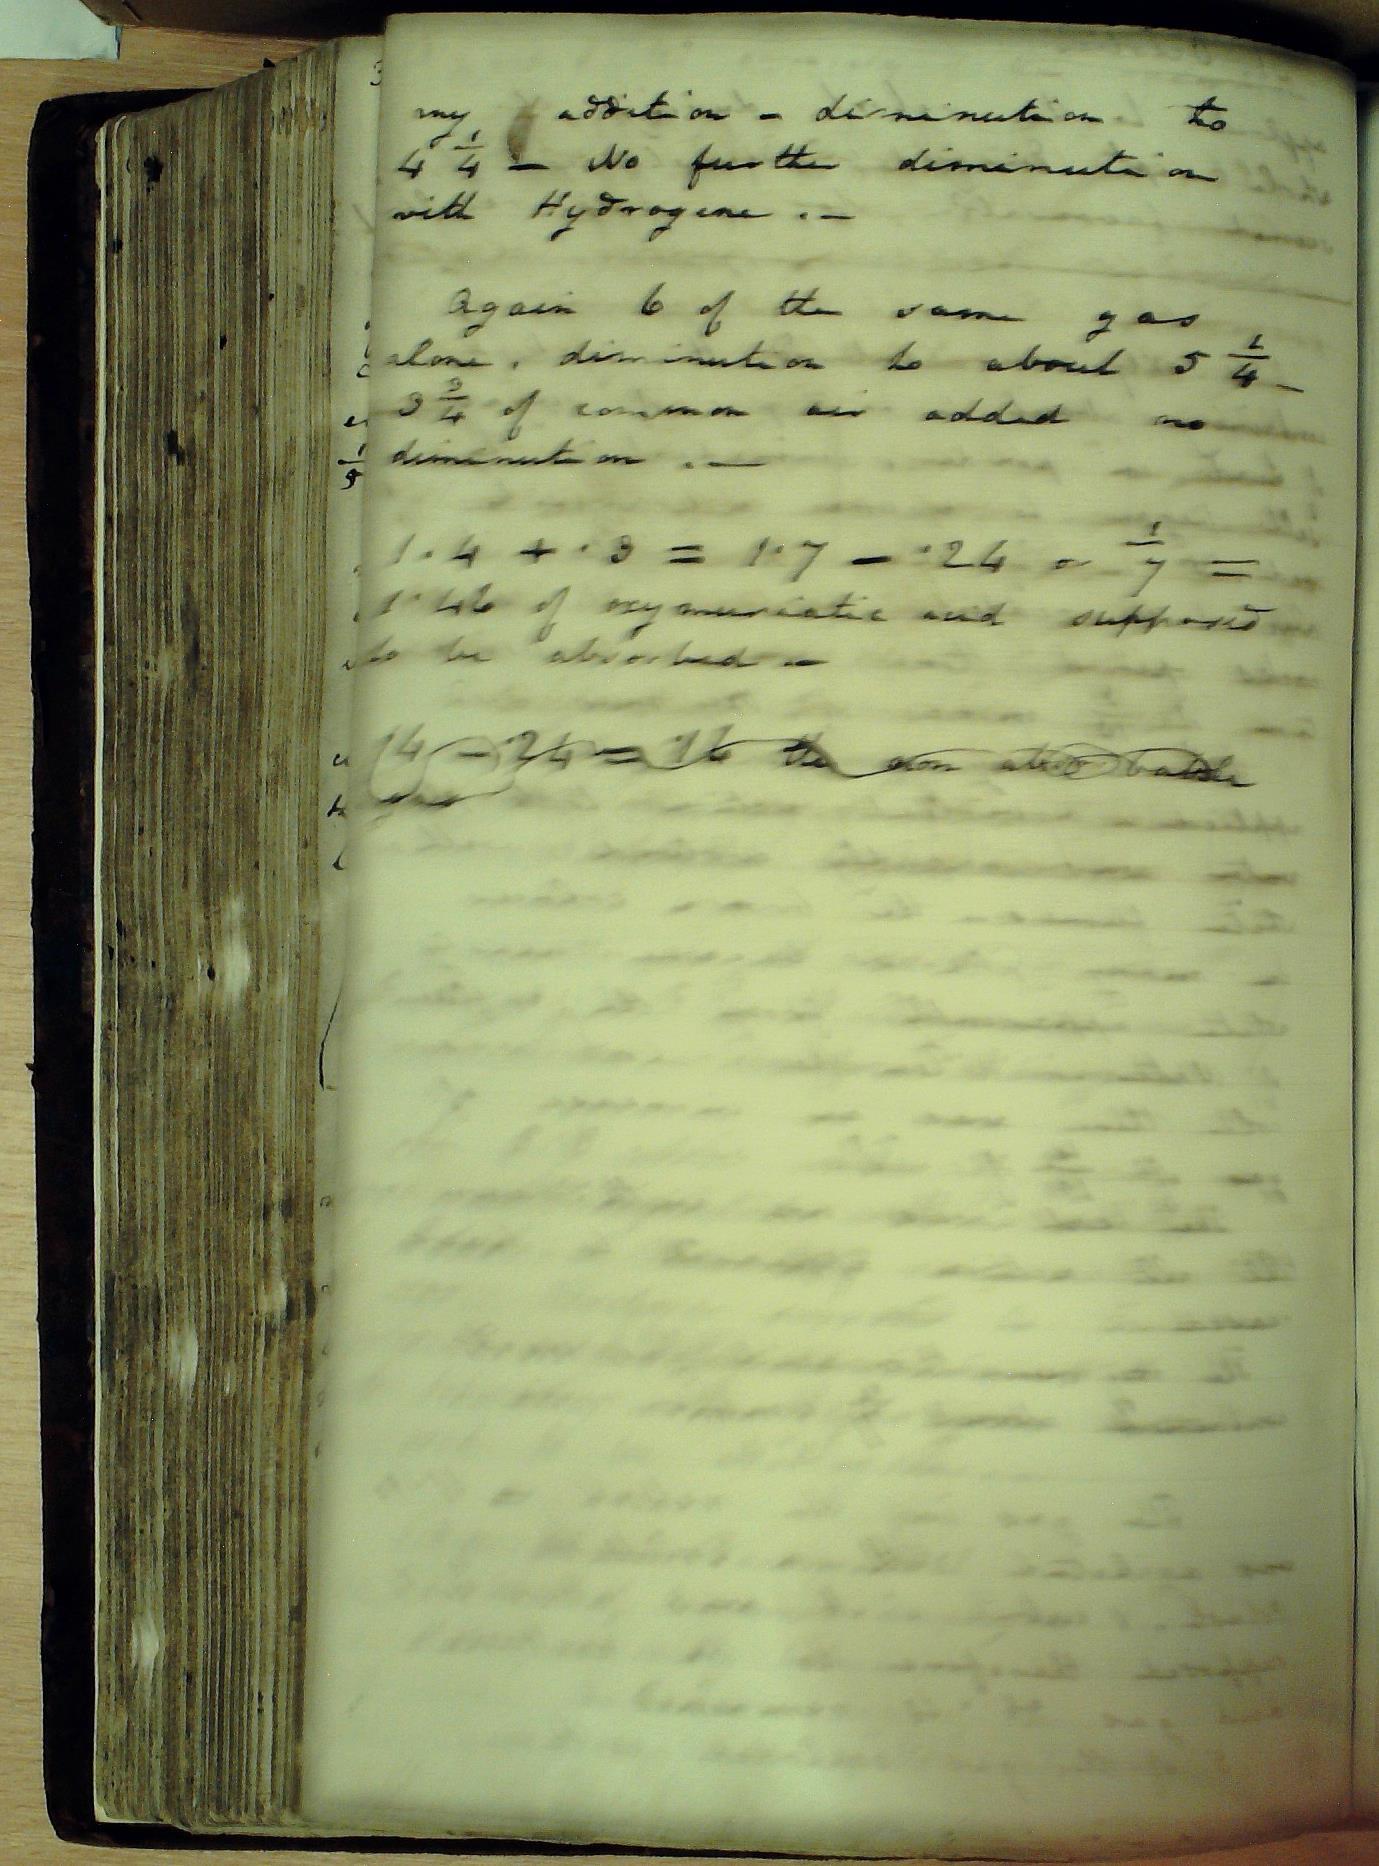 my addition - diminution to
4 1/4 — No further diminution
with Hydrogene . —
Again 6 of the same gas
alone . diminution to about 5 1/4 —
3 3/4 of common air added no
diminution . —
1·4 + ·3 = 1·7 — ·24 or 1/7 =
1·46 of oxymuriatic acid supposed
to be absorbed —
14 — ·24 = ·16 the non absorbable
gas